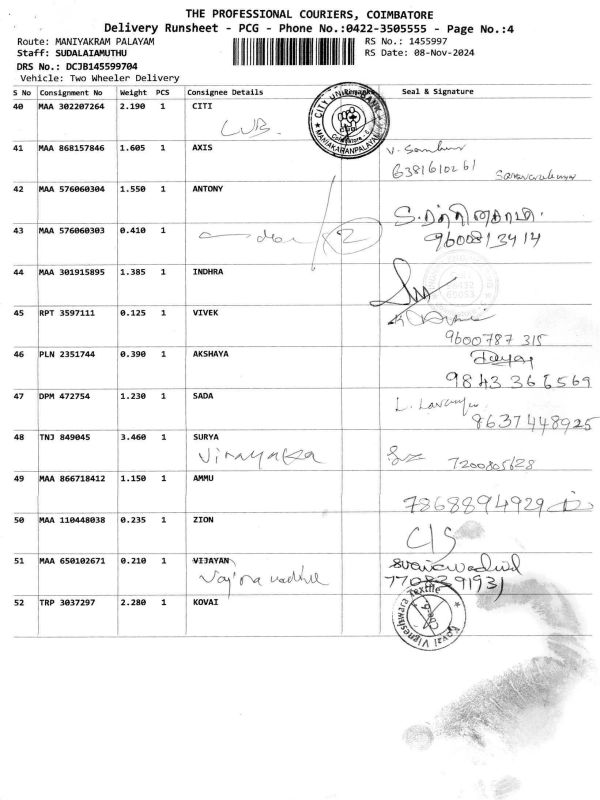 THE PROFESSIONAL COURIERS, COIMBATORE
Delivery Runsheet - PCG - Phone No.:0422-3505555 - Page No.:4
Route: MANIYAKRAM PALAYAM RS No.: 1455997
Staff: SUDALAIAMUTHU RS Date: 08-Nov-2024
DRS No.: DCJB145599704
Vehicle: Two Wheeler Delivery
S No Consignment No Weight PCS Consignee Details Remarks Seal & Signature
40 MAA 302207264 2.190 1 CITI
CUB. CITY UNION BANK
41 MAA 868157846 1.605 1 AXIS
6381610261
42 MAA 576060304 1.550 1 ANTONY
43 MAA 576060303 0.410 1 2 9600813414
44 MAA 301915895 1.385 1 INDHRA
45 RPT 3597111 0.125 1 VIVEK
9600787 315
46 PLN 2351744 0.390 1 AKSHAYA
9843 366569
47 DPM 472754 1.230 1 SADA
8637448925
48 TNJ 849045 3.460 1 SURYA
Vinayaka 7200805628
49 MAA 866718412 1.150 1 AMMU
7868894929
50 MAA 110448038 0.235 1 ZION
51 MAA 650102671 0.210 1 VIJAYAN
7708391931
52 TRP 3037297 2.280 1 KOVAI
Kovai Vigneshwara Textile